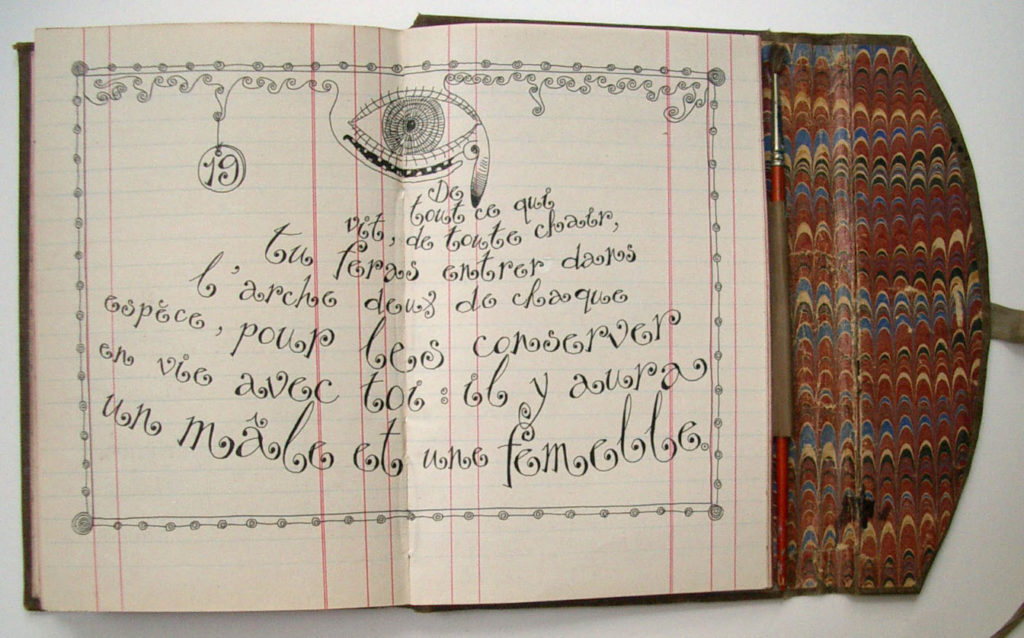 19
De
tout ce qui
vit, de toute chair,
tu feras entrer dans
l'arche deux de chaque
espèce, pour les conserver
en vie avec toi : il y aura
un mâle et une femelle.